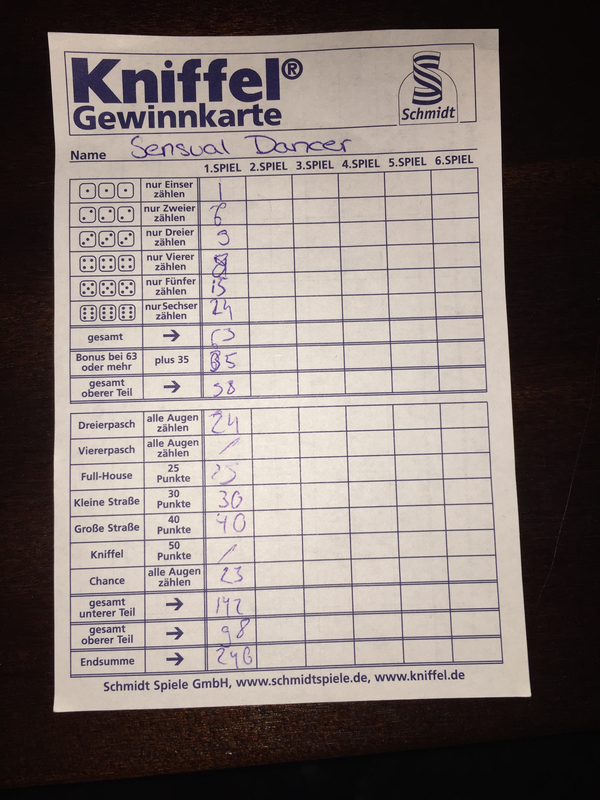 Kniffel®
Gewinnkarte
Schmidt
Name Sensual Dancer
1.SPIEL 2.SPIEL 3.SPIEL 4.SPIEL 5.SPIEL 6.SPIEL
nur Einser zählen 1
nur Zweier zählen 6
nur Dreier zählen 9
nur Vierer zählen 8
nur Fünfer zählen 15
nur Sechser zählen 24
gesamt → 63
Bonus bei 63 oder mehr plus 35 35
gesamt oberer Teil → 98
Dreierpasch alle Augen zählen 24
Viererpasch alle Augen zählen /
Full-House 25 Punkte 25
Kleine Straße 30 Punkte 30
Große Straße 40 Punkte 40
Kniffel 50 Punkte /
Chance alle Augen zählen 23
gesamt unterer Teil → 142
gesamt oberer Teil → 98
Endsumme → 240
Schmidt Spiele GmbH, www.schmidtspiele.de, www.kniffel.de